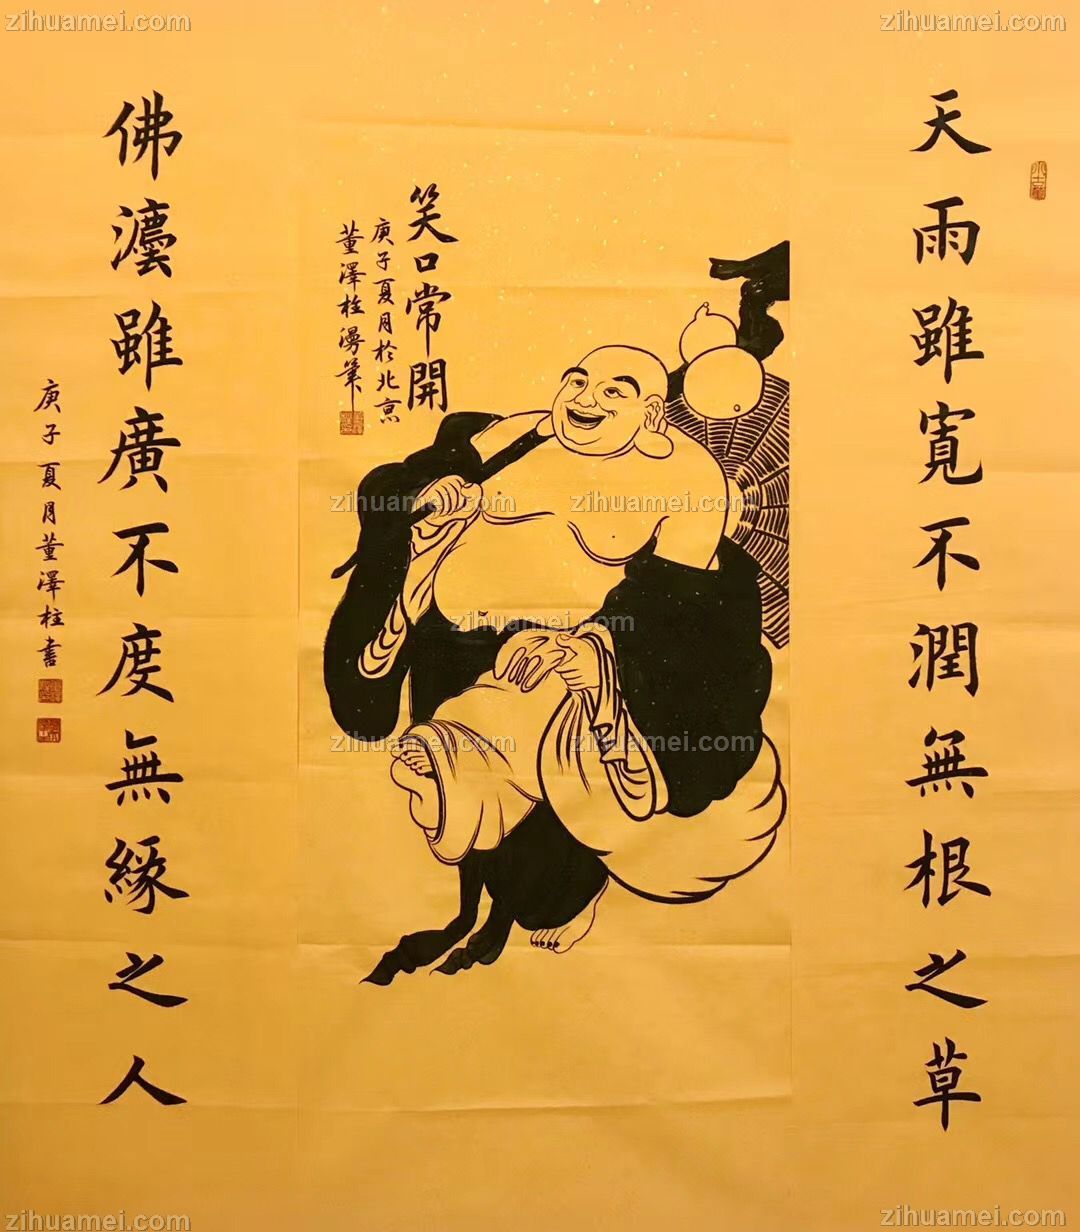 zihuamei.com
zihuamei.com
天雨雖寬不潤無根之草
笑口常開
庚子夏月於北京
董澤柱漫筆
佛法雖廣不度無緣之人
庚子夏月董澤柱書
zihuamei.com
zihuamei.com
zihuamei.com
zihuamei.com
zihuamei.com
zihuamei.com
zihuamei.com